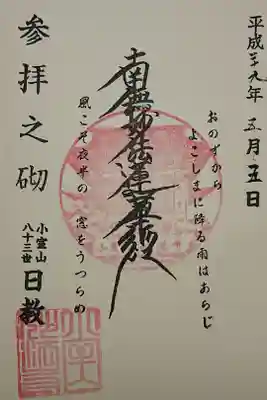 平成二十九年五月五日
おのずから
よこしまに降る雨はあらじ
南無妙法蓮華経
風こそ夜半の窓をうつらめ
参拝之砌
小室山
八十三世
日教